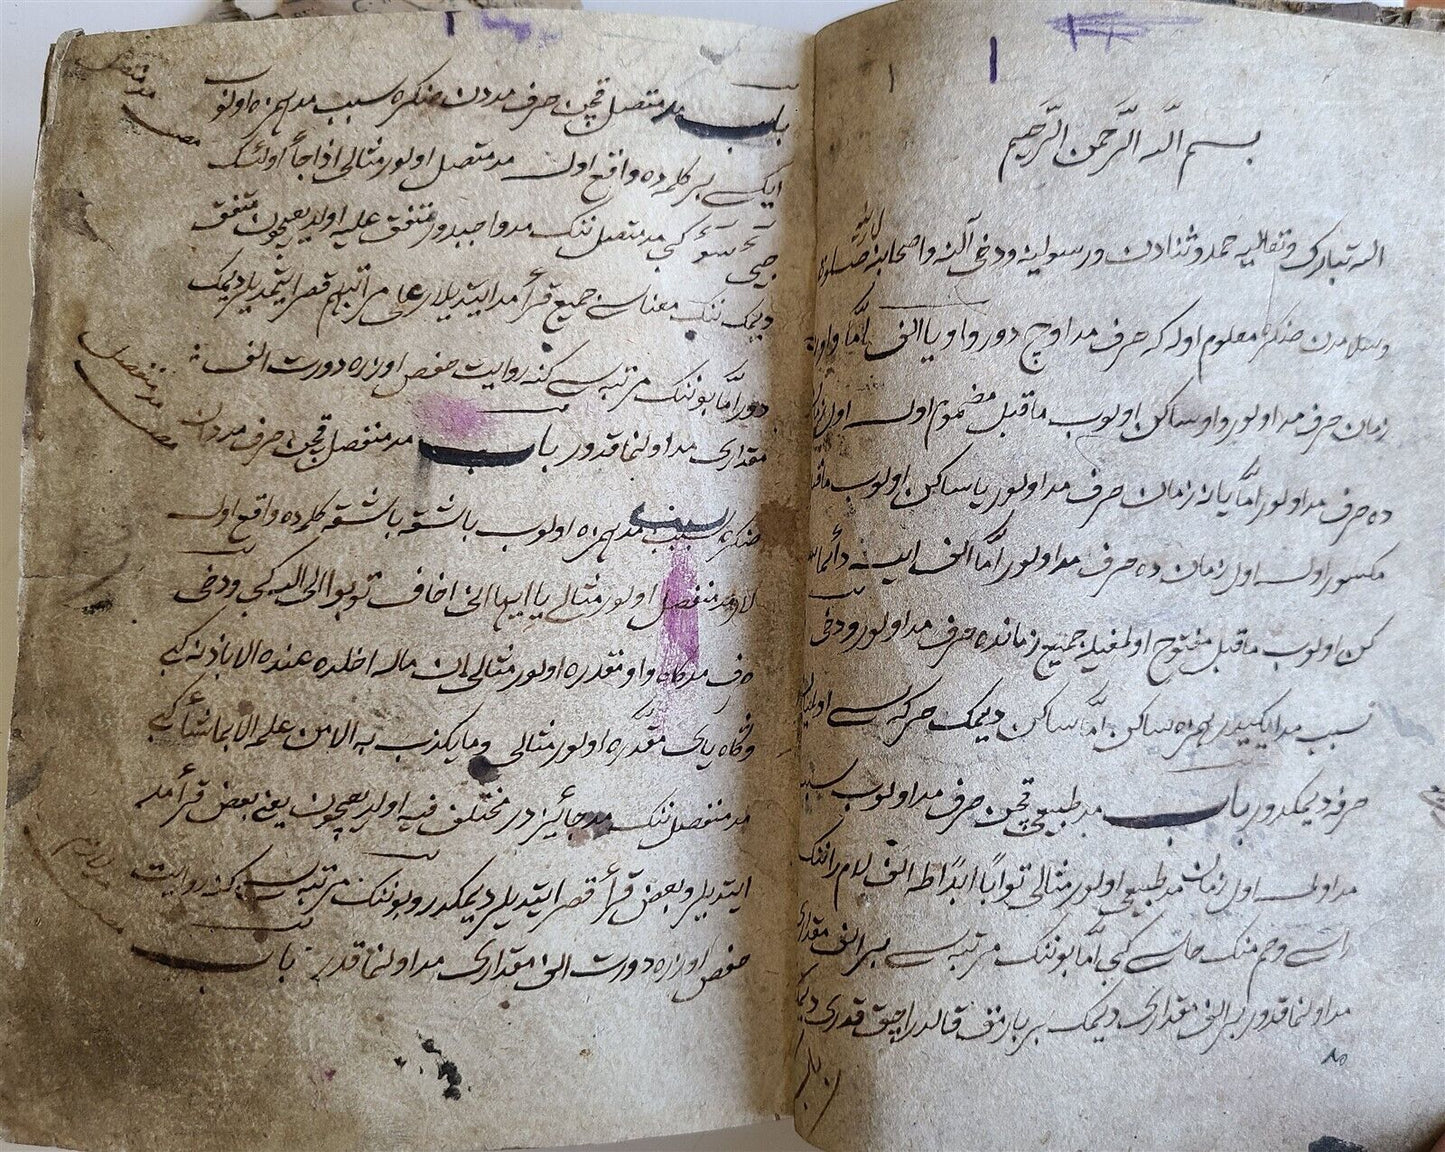 بسم الله الرحمن الرحيم
الله تبارك وتعاليه حمد وثنادن ورسولينه ودخى آلنه واصحابنه صلوة
وسلامدن صكره معلوم اوله كه حرف مد اوچ دور واو ويا الف امّا واو
زمان حرف مد اولور واو ساكن اولوب ماقبل مضموم اولسه اول زمان
ده حرف مد اولور امّا يا نه زمان حرف مد اولور يا ساكن اولوب ماقبل
مكسور اولسه اول زمان ده حرف مد اولور امّا الف ايسه دائما
كن اولوب ماقبل مفتوح اولمغيله جميع زمانده حرف مد اولور ودخى
سبب مد ايكيدر بهمزه ساكن امّا ساكن ديمك حركه سى اولميان
حرفه ديمكدور باب مد طبيعى قچن حرف مد اولوب سبب
مد اولمسه اول زمان مد طبيعى اولور مثالى توابا ابدا طه الف لام رانك
راسى وحم نك حاسى كبى امّا بونك مرتبه سى بر الف مقدارى
مد اولنماقدور بر الف مقدارى ديمك بر پارمق قالدراجق قدرى ديمك
٨٥
باب مد متصل قچن حرف مددن صكره سبب مد همزه اولوب
ايكسى بر كلمه ده واقع اولسه مد متصل اولور مثالى اذا جاء اولئك
جىء سوء كبى مد متصل نك مد واجبدور متفق عليه اولديغيچون متفق
ديمك نك معناسى جميع قرأ مد ايتديلار على مراتبهم قصر ايتمديلر ديمك
دور امّا بونك مرتبه سى كنه روايت حفص اوزره دورت الف
مقدارى مد اولنماقدور باب مد منفصل قچن حرف مددن
صكره سبب مد همزه اولوب باشقه باشقه كلمه ده واقع اولسه
مد منفصل اولور مثالى يا ايها انى اخاف توبوا الى الله كبى ودخى
حرف مد كاه واو مقدره اولور مثالى ان ماله اخلده عنده الا باذنه كبى
وكاه ياى مقدره اولور مثالى وما يكذب به الا من علمه الا بما شاء كبى
مد منفصل نك مد جائزدر مختلف فيه اولديغيچون يعنى بعض قرأ مد
ايتديلر وبعض قرأ قصر ايتديلر ديمكدر وبونك مرتبه سى كنه روايت
حفص اوزره دورت الف مقدارى مد اولنماقدر باب
مد متصل
مد منفصل